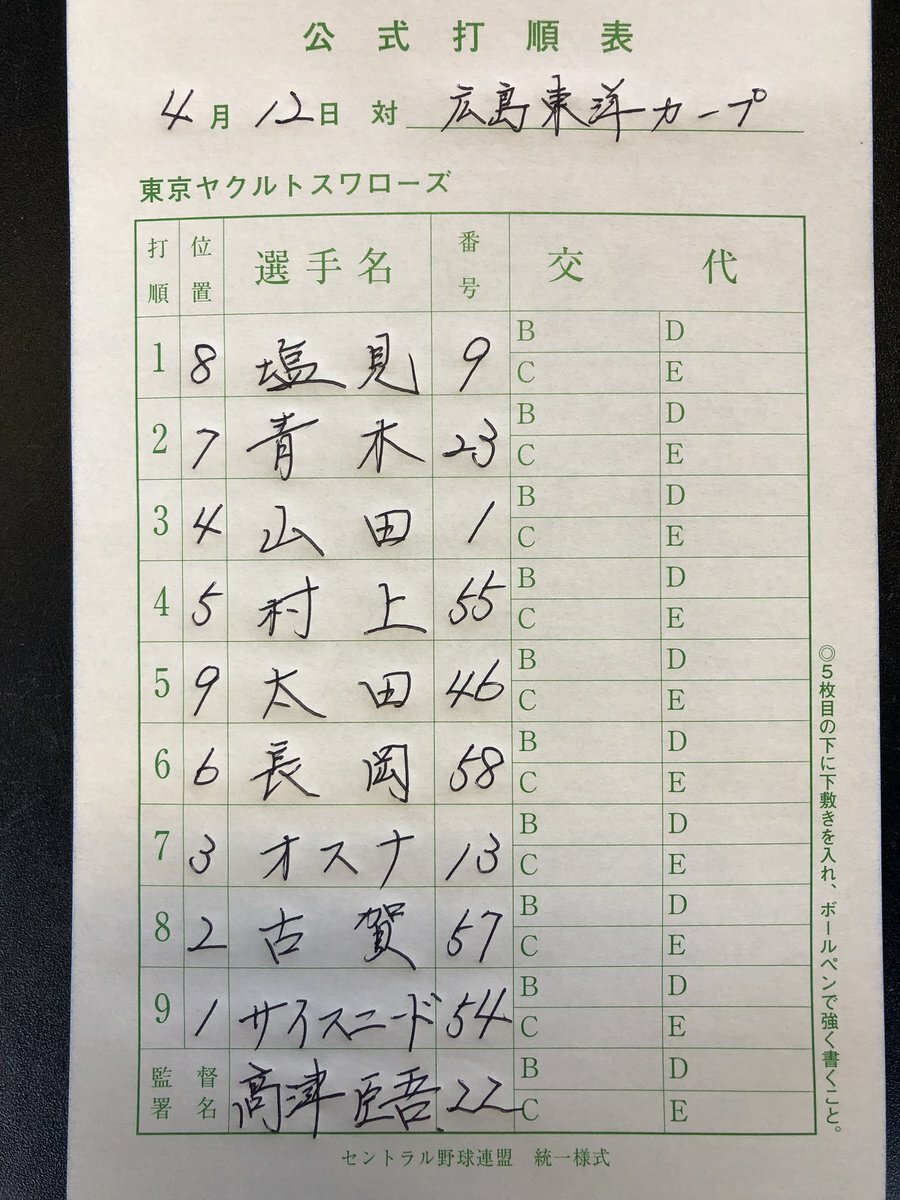 公式打順表
4月12日 対 広島東洋カープ
東京ヤクルトスワローズ
打順 位置 選手名 番号 交代
1 8 塩見 9 B D C E
2 7 青木 23 B D C E
3 4 山田 1 B D C E
4 5 村上 55 B D C E
5 9 太田 46 B D C E
6 6 長岡 58 B D C E
7 3 オスナ 13 B D C E
8 2 古賀 57 B D C E
9 1 サイスニード 54 B D C E
監督署名 高津臣吾 22 B D C E
◎5枚目の下に下敷きを入れ、ボールペンで強く書くこと。
セントラル野球連盟 統一様式